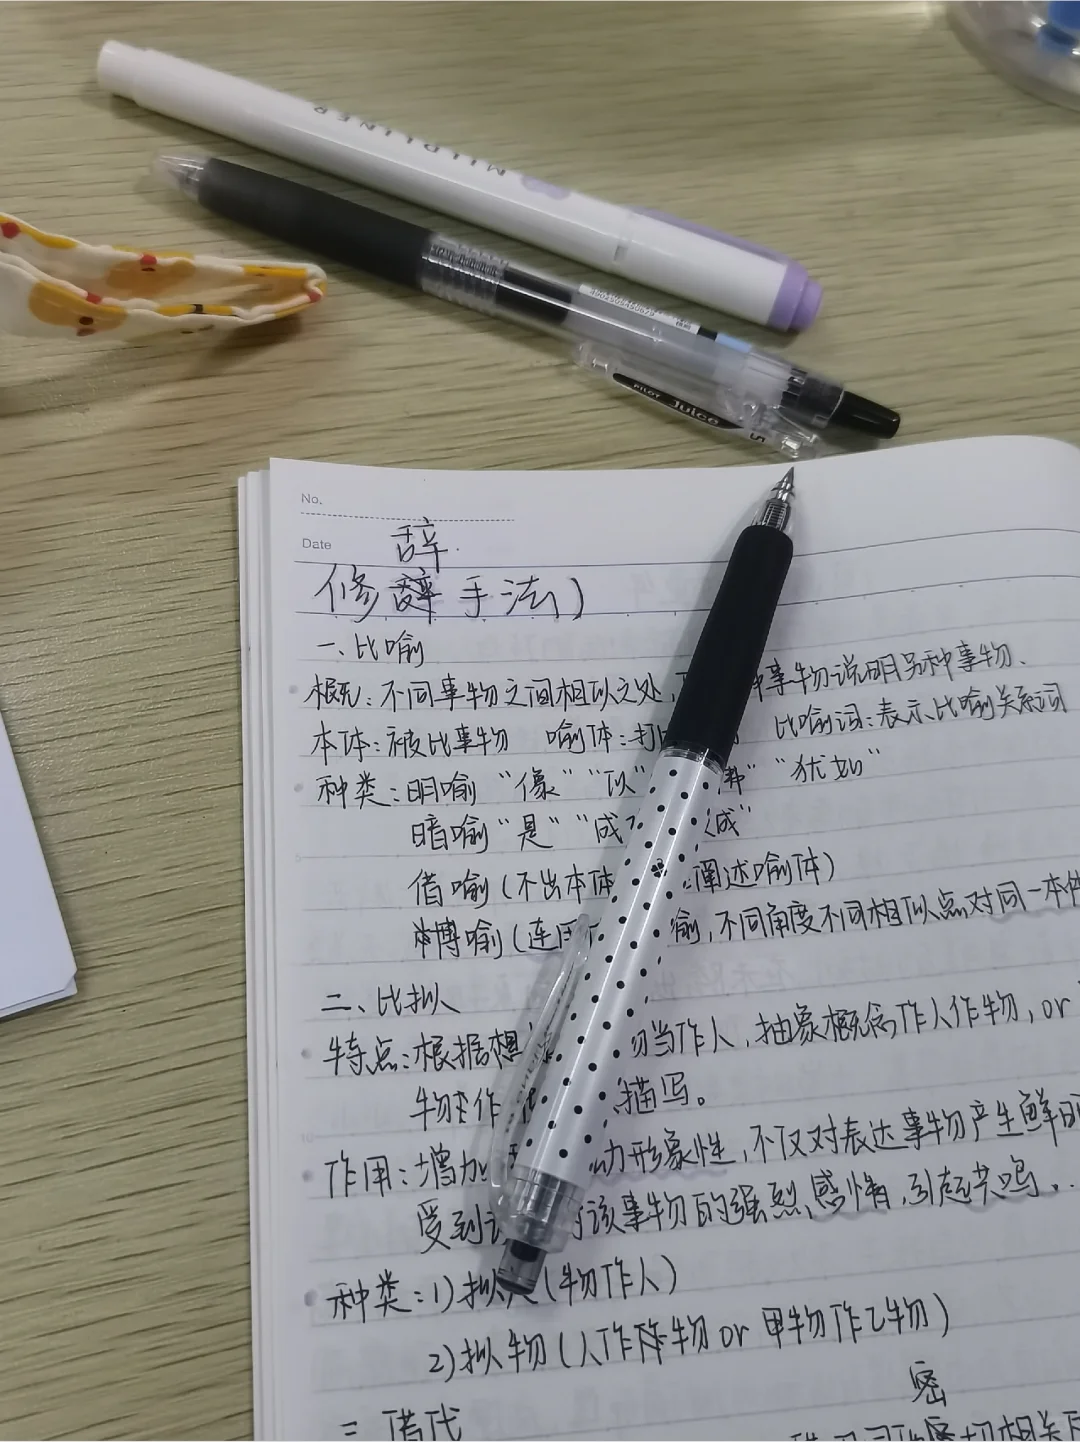 MILDLINER
PILOT Juice 5
No.
Date
辞
修辞手法)
一、比喻
概况：不同事物之间相似之处， 事物说明另种事物、
本体：被比事物 喻体：打 比喻词：表示比喻关系词
种类：明喻 “像” “似” “犹如”
暗喻 “是” “成 成”
借喻（不出本体 阐述喻体）
博喻（连 喻，不同角度不同相似点对同一本体
二、比拟
特点：根据想 当作人，抽象概念作人作物，or
物 作 描写。
作用：增加 动形象性，不仅对表达事物产生鲜明
受到 该事物的强烈感情，引起共鸣..
种类：1）拟人（物作人）
2）拟物（人作 物 or 甲物作乙物）
密
三 借代
密切相关